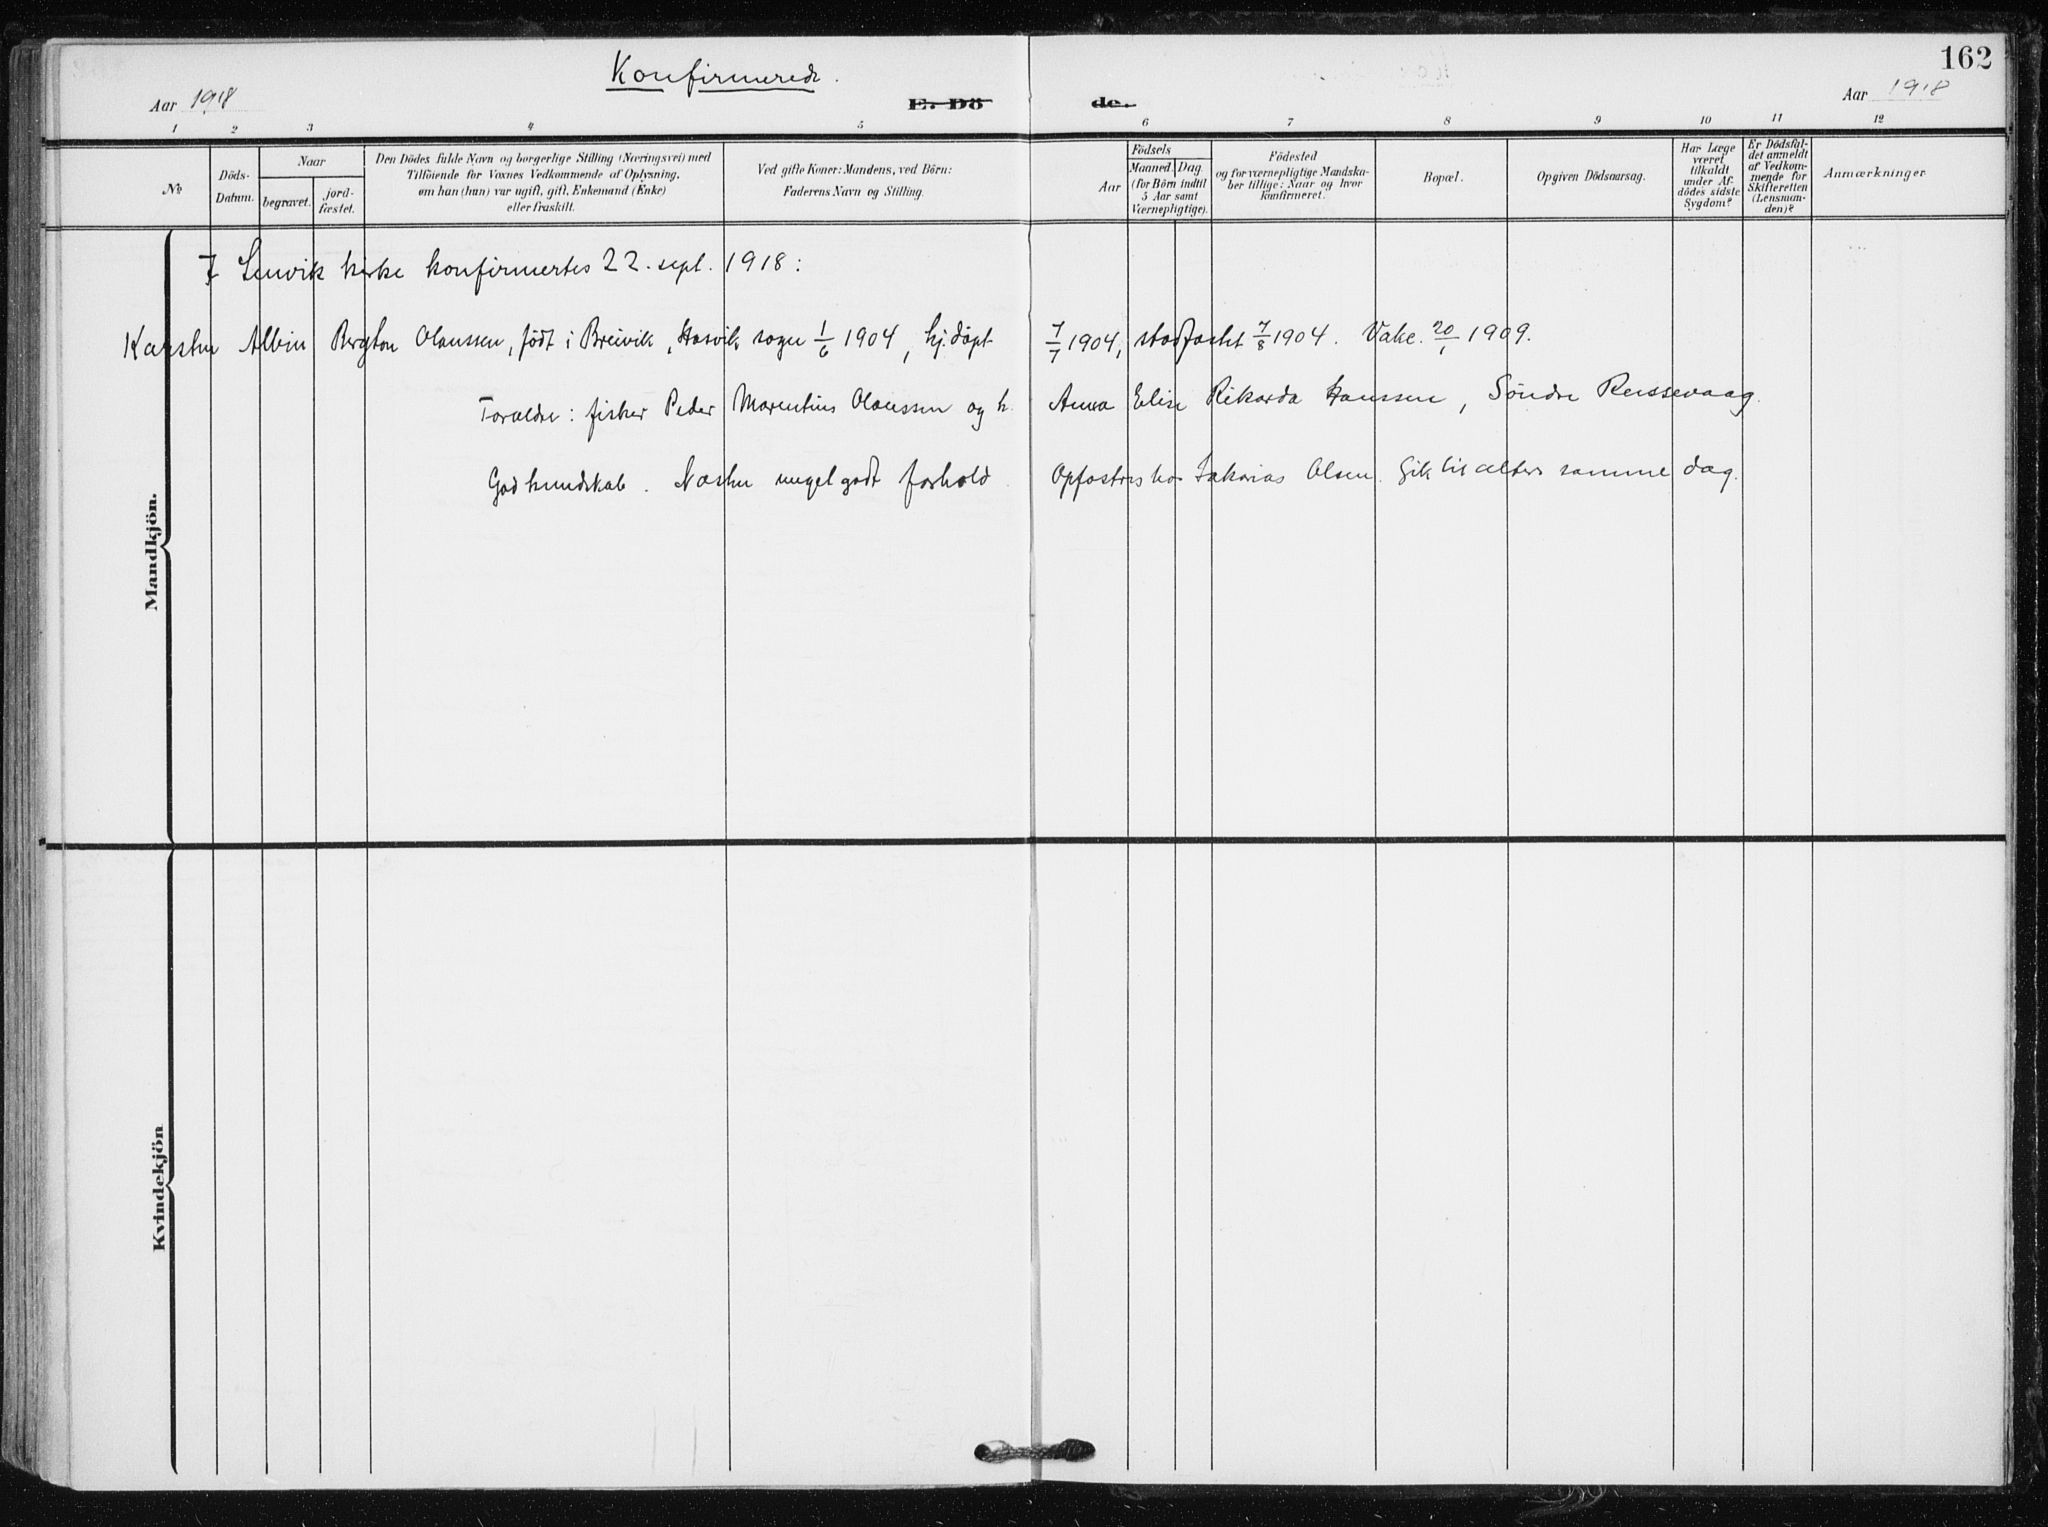 162
Konfirmerede.
Aar 1918
E. Dö de.
Aar 1918
1 2 3 4 5 6 7 8 9 10 11 12
No
Döds-
Datum.
Naar
begravet.
jord-
fæstet.
Den Dödes fulde Navn og borgerlige Stilling (Næringsvei) med
Tilföiende for Voxnes Vedkommende af Oplysning,
om han (hun) var ugift, gift, Enkemand (Enke)
eller fraskilt.
Ved gifte Koner: Mandens, ved Börn:
Faderens Navn og Stilling.
Födsels
Aar
Maaned. Dag.
(for Börn indtil
5 Aar samt
Værnepligtige).
Födested
og for værnepligtige Mandska-
ber tillige: Naar og hvor
konfirmeret.
Bopæl.
Opgiven Dödsaarsag.
Har Læge
været
tilkaldt
under Af-
dödes sidste
Sygdom?
Er Dödsfal-
det anmeldt
af Vedkom-
mende for
Skifteretten
(Lensman-
den)?
Anmærkninger
I Lenvik kirke konfirmertes 22. sept. 1918:
Karsten Albin Bergton Olaussen, født i Breivik, Hasvik sogn 1/6 1904, hj.døpt 7/7 1904, stadfæstet 7/8 1904. Vakc. 20/1 1909.
Forældre: fisker Peder Marentius Olaussen og h. Anna Elise Rikarda Hanssen, Søndre Reissevaag.
God kundskab. Næsten meget godt forhold. Opfostres hos Zakarias Olsen. Gik til alters samme dag.
Mandkjön.
Kvindekjön